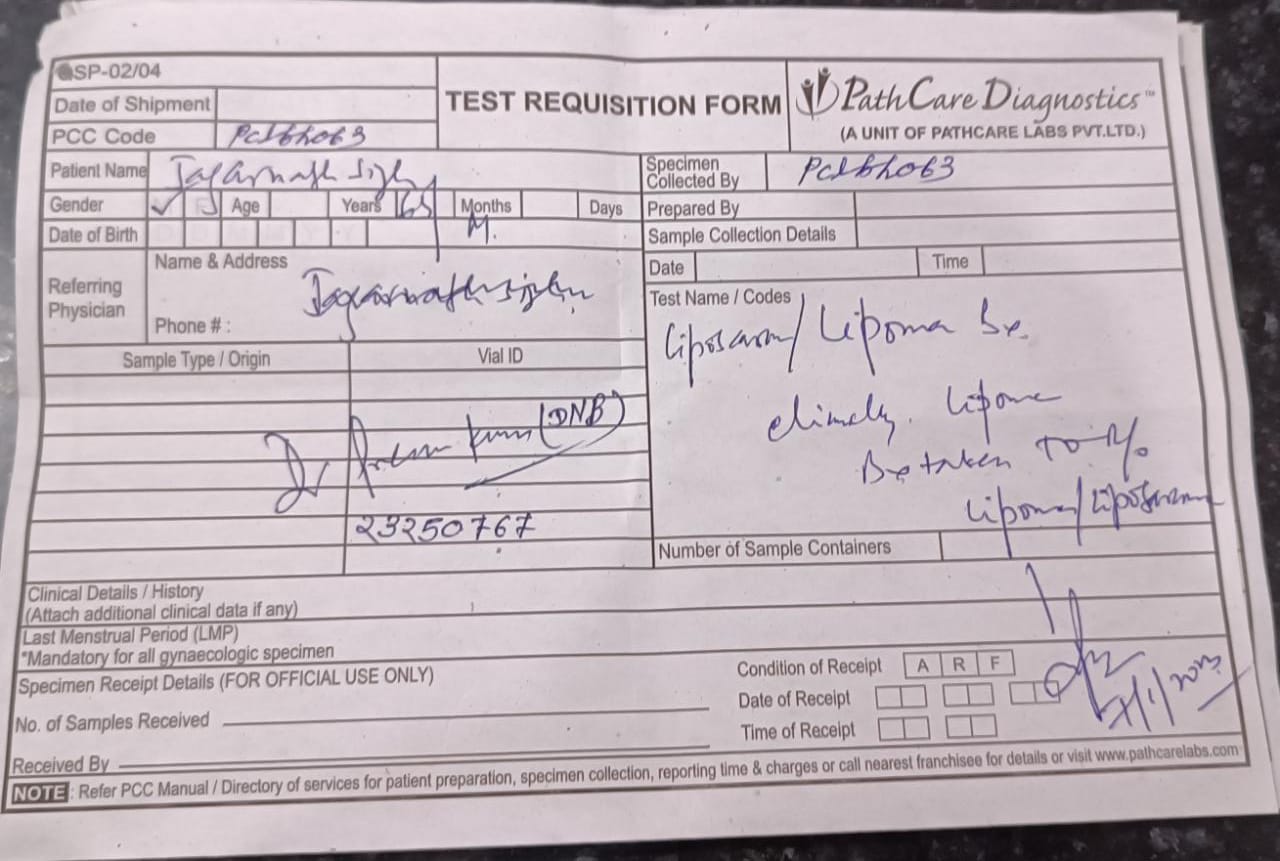 SP-02/04
Date of Shipment
PCC Code
TEST REQUISITION FORM
PathCare Diagnostics™
(A UNIT OF PATHCARE LABS PVT.LTD.)
Patient Name
Specimen Collected By
Gender Age Years 65 Months Days
M.
Prepared By
Date of Birth
Sample Collection Details
Referring Physician
Name & Address
Phone # :
Date Time
Test Name / Codes
Lipoma Bx.
Lipoma
Bx taken To R/o
Lipoma/
Sample Type / Origin Vial ID
Dr (DNB)
23250767
Number of Sample Containers
Clinical Details / History
(Attach additional clinical data if any)
Last Menstrual Period (LMP)
*Mandatory for all gynaecologic specimen
Specimen Receipt Details (FOR OFFICIAL USE ONLY)
No. of Samples Received
Received By
Condition of Receipt A R F
Date of Receipt
Time of Receipt
NOTE : Refer PCC Manual / Directory of services for patient preparation, specimen collection, reporting time & charges or call nearest franchisee for details or visit www.pathcarelabs.com